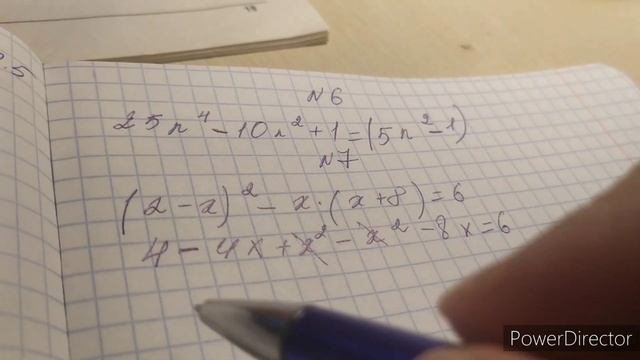 25
№6
25n⁴-10n²+1=(5n²-1)
№7
(2-x)²-x·(x+8)=6
4-4x+x²-x²-8x=6
PowerDirector